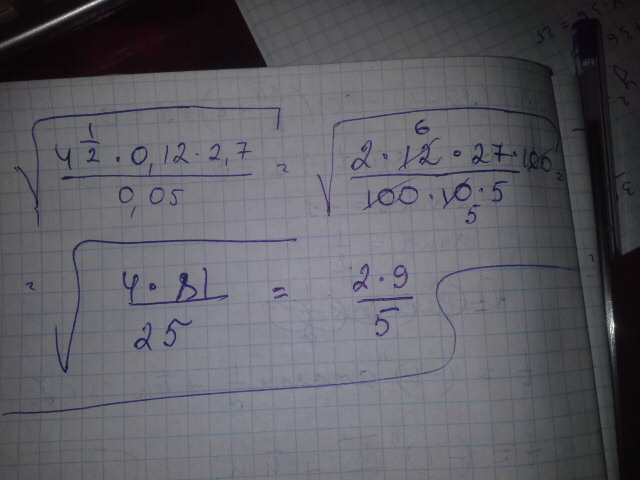 √(4^(1/2) · 0,12 · 2,7 / 0,05) = √(2 · 12 · 27 · 100 / 100 · 10 · 5) =
6
5
= √(4 · 81 / 25) = 2 · 9 / 5